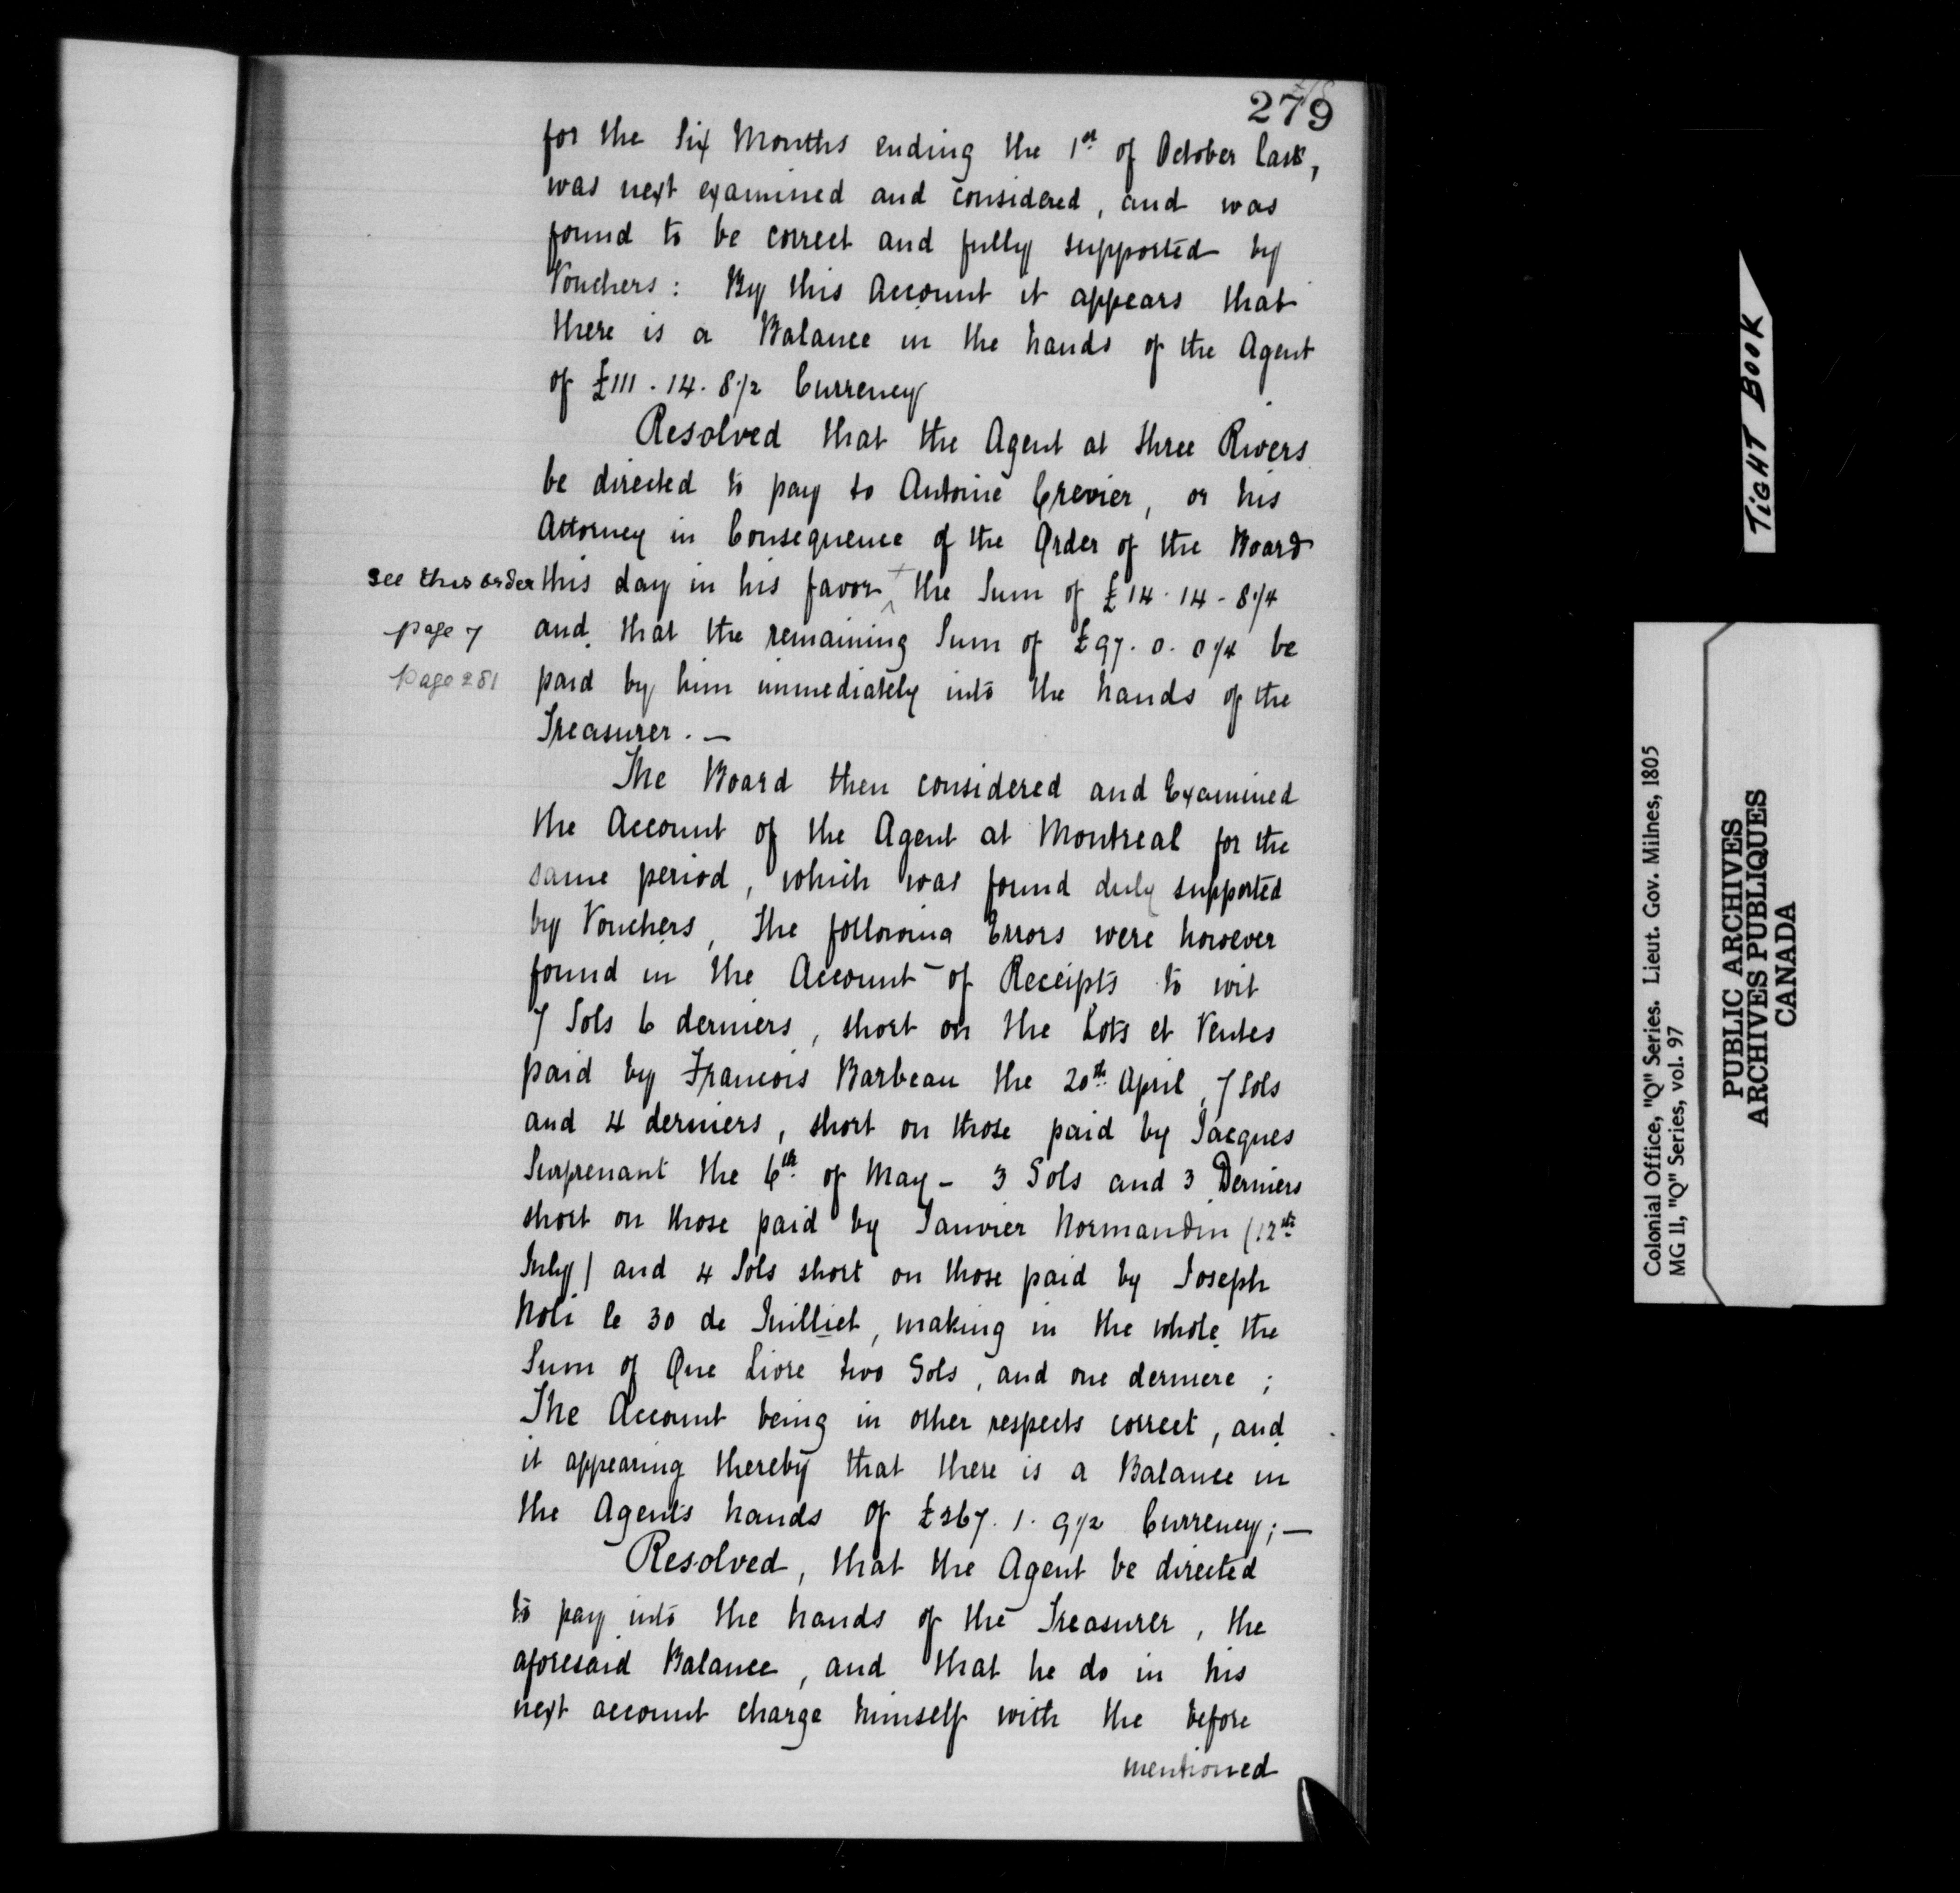 279
for the Six Months ending the 1st of October last,
was next examined and considered, and was
found to be correct and fully supported by
Vouchers: By this Account it appears that
there is a Balance in the hands of the Agent
of £111. 14. 8 1/2 Currency
Resolved that the Agent at Three Rivers
be directed to pay to Antoine Crevier, or his
Attorney in Consequence of the Order of the Board
see this order
page 7
page 281
this day in his favor + ^ the Sum of £14. 14 - 8 1/4
and that the remaining Sum of £97. 0. 0 1/4 be
paid by him immediately into the hands of the
Treasurer. —
The Board then considered and Examined
the Account of the Agent at Montreal for the
same period, which was found duly supported
by Vouchers, The following Errors were however
found in the Account of Receipts to wit
7 Sols 6 derniers, short on the Lots et Ventes
paid by Francois Barbeau the 20th April, 7 Sols
and 4 derniers, short on those paid by Jacques
Surprenant the 6th of May - 3 Sols and 3 Derniers
short on those paid by Janvier Normandin (12th
July) and 4 Sols short on those paid by Joseph
Noli le 30 de Juilliet, making in the whole the
Sum of One Livre two Sols, and one derniere;
The Account being in other respects correct, and
it appearing thereby that there is a Balance in
the Agents hands of £267. 1. 9 1/2 Currency; —
Resolved, that the Agent be directed
to pay into the hands of the Treasurer, the
aforesaid Balance, and that he do in his
next account charge himself with the before
mentioned
TIGHT BOOK
Colonial Office, "Q" Series. Lieut. Gov. Milnes, 1805
MG 11, "Q" Series, vol. 97
PUBLIC ARCHIVES
ARCHIVES PUBLIQUES
CANADA